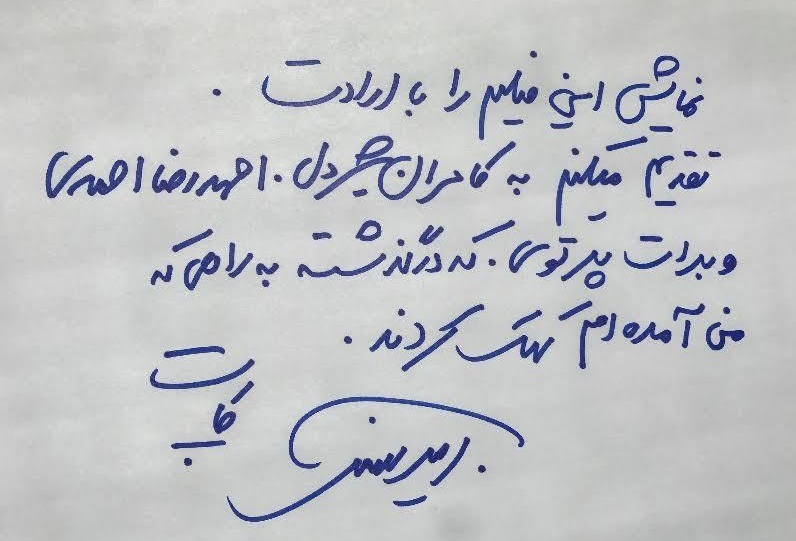 نمایش این فیلم را با ارادت
تقدیم میکنم به کامران شیردل. احمدرضا احمدی
و بدات پرتوی. که در گذشته به راهی که
من آمده‌ام کمک کردند.